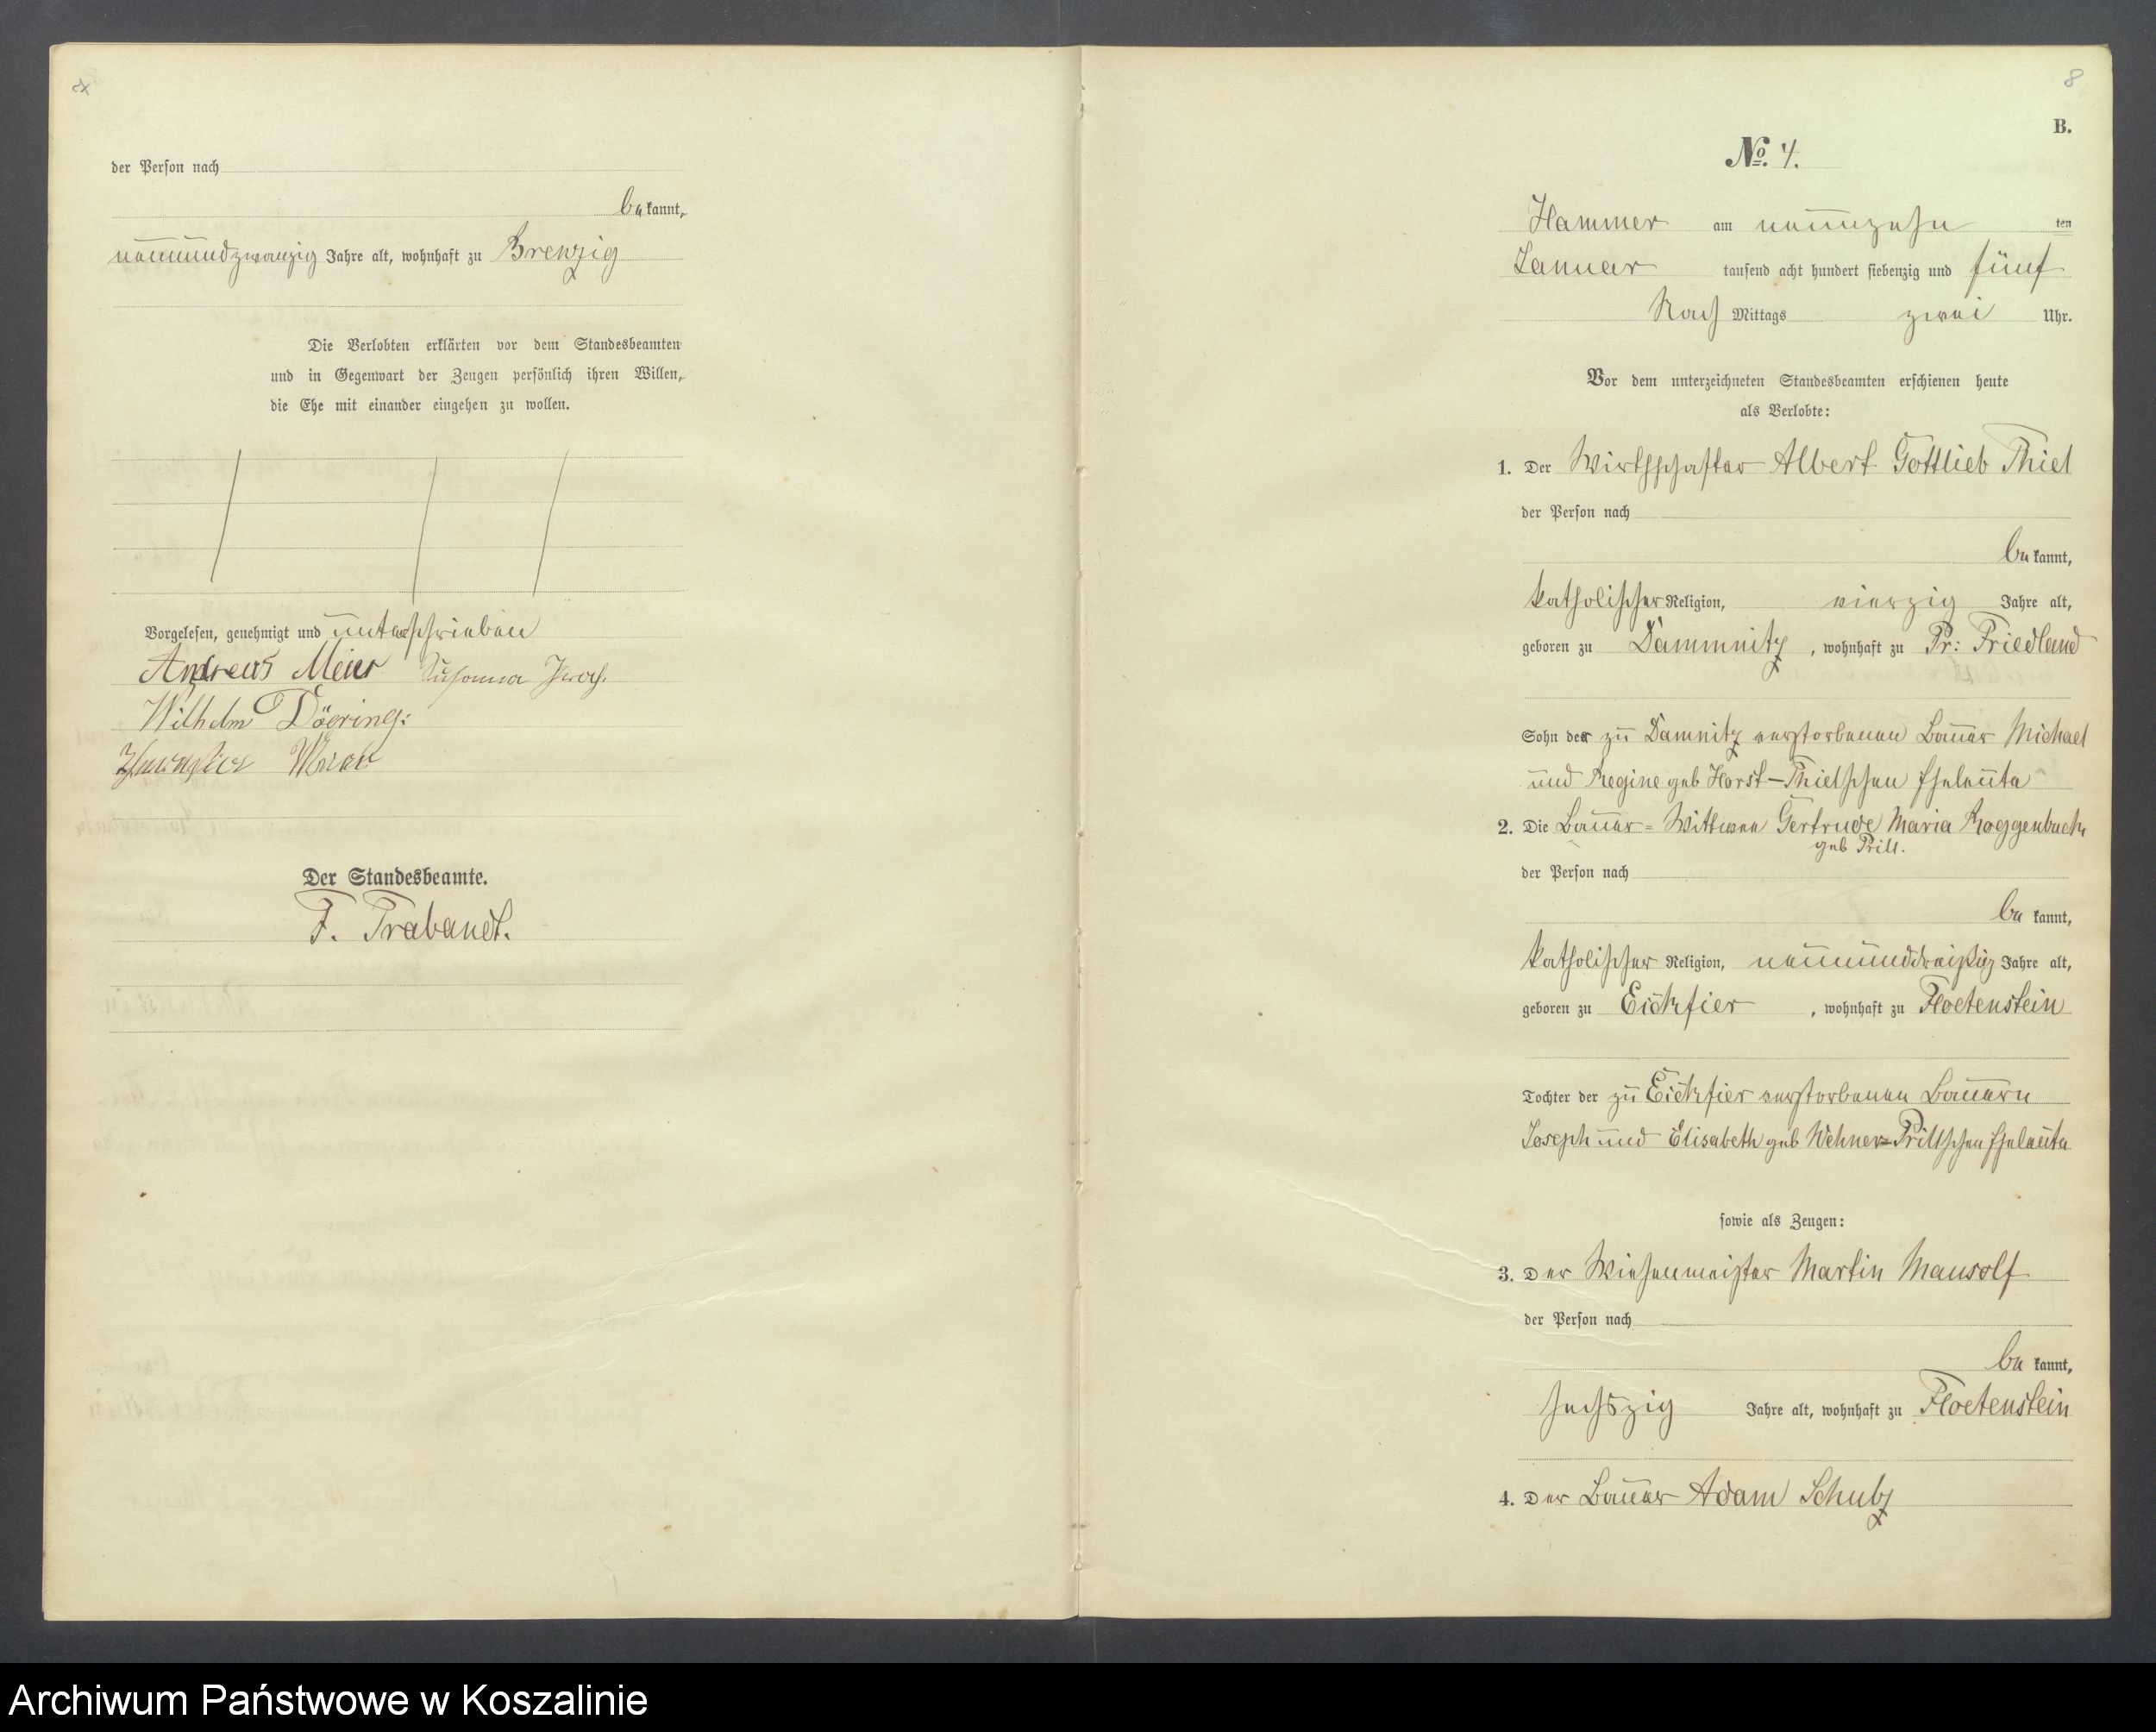 der Person nach
be kannt,
neunundzwanzig Jahre alt, wohnhaft zu Brenzig
Die Verlobten erklärten vor dem Standesbeamten
und in Gegenwart der Zeugen persönlich ihren Willen,
die Ehe mit einander eingehen zu wollen.
Vorgelesen, genehmigt und unterschrieben
Andreas Meier Susanna
Wilhelm Döering.
Der Standesbeamte.
F. Trabandt.
8
B.
No. 4.
Hammer am neunzehn ten
Januar tausend acht hundert siebenzig und fünf
Nach Mittags zwei Uhr.
Vor dem unterzeichneten Standesbeamten erschienen heute
als Verlobte:
1. Der Wirthschafter Albert Gottlieb Thiel
der Person nach
be kannt,
katholischer Religion, vierzig Jahre alt,
geboren zu Dammnitz, wohnhaft zu Pr: Friedland
Sohn der zu Damnitz verstorbenen Bauer Michael
und Regine geb Horst-Thielschen Eheleute
2. Die Bauer-Wittwee Gertrude Maria Roggenbuck
geb Prill.
der Person nach
be kannt,
katholischer Religion, neununddreißig Jahre alt,
geboren zu Eickfier, wohnhaft zu Floetenstein
Tochter der zu Eickfier verstorbenen Bauern
Joseph und Elisabeth geb Wehner-Prillschen Eheleute
sowie als Zeugen:
3. Der Wiesenmeister Martin Mausolf
der Person nach
be kannt,
sechszig Jahre alt, wohnhaft zu Floetenstein
4. Der Bauer Adam Schulz
Archiwum Państwowe w Koszalinie